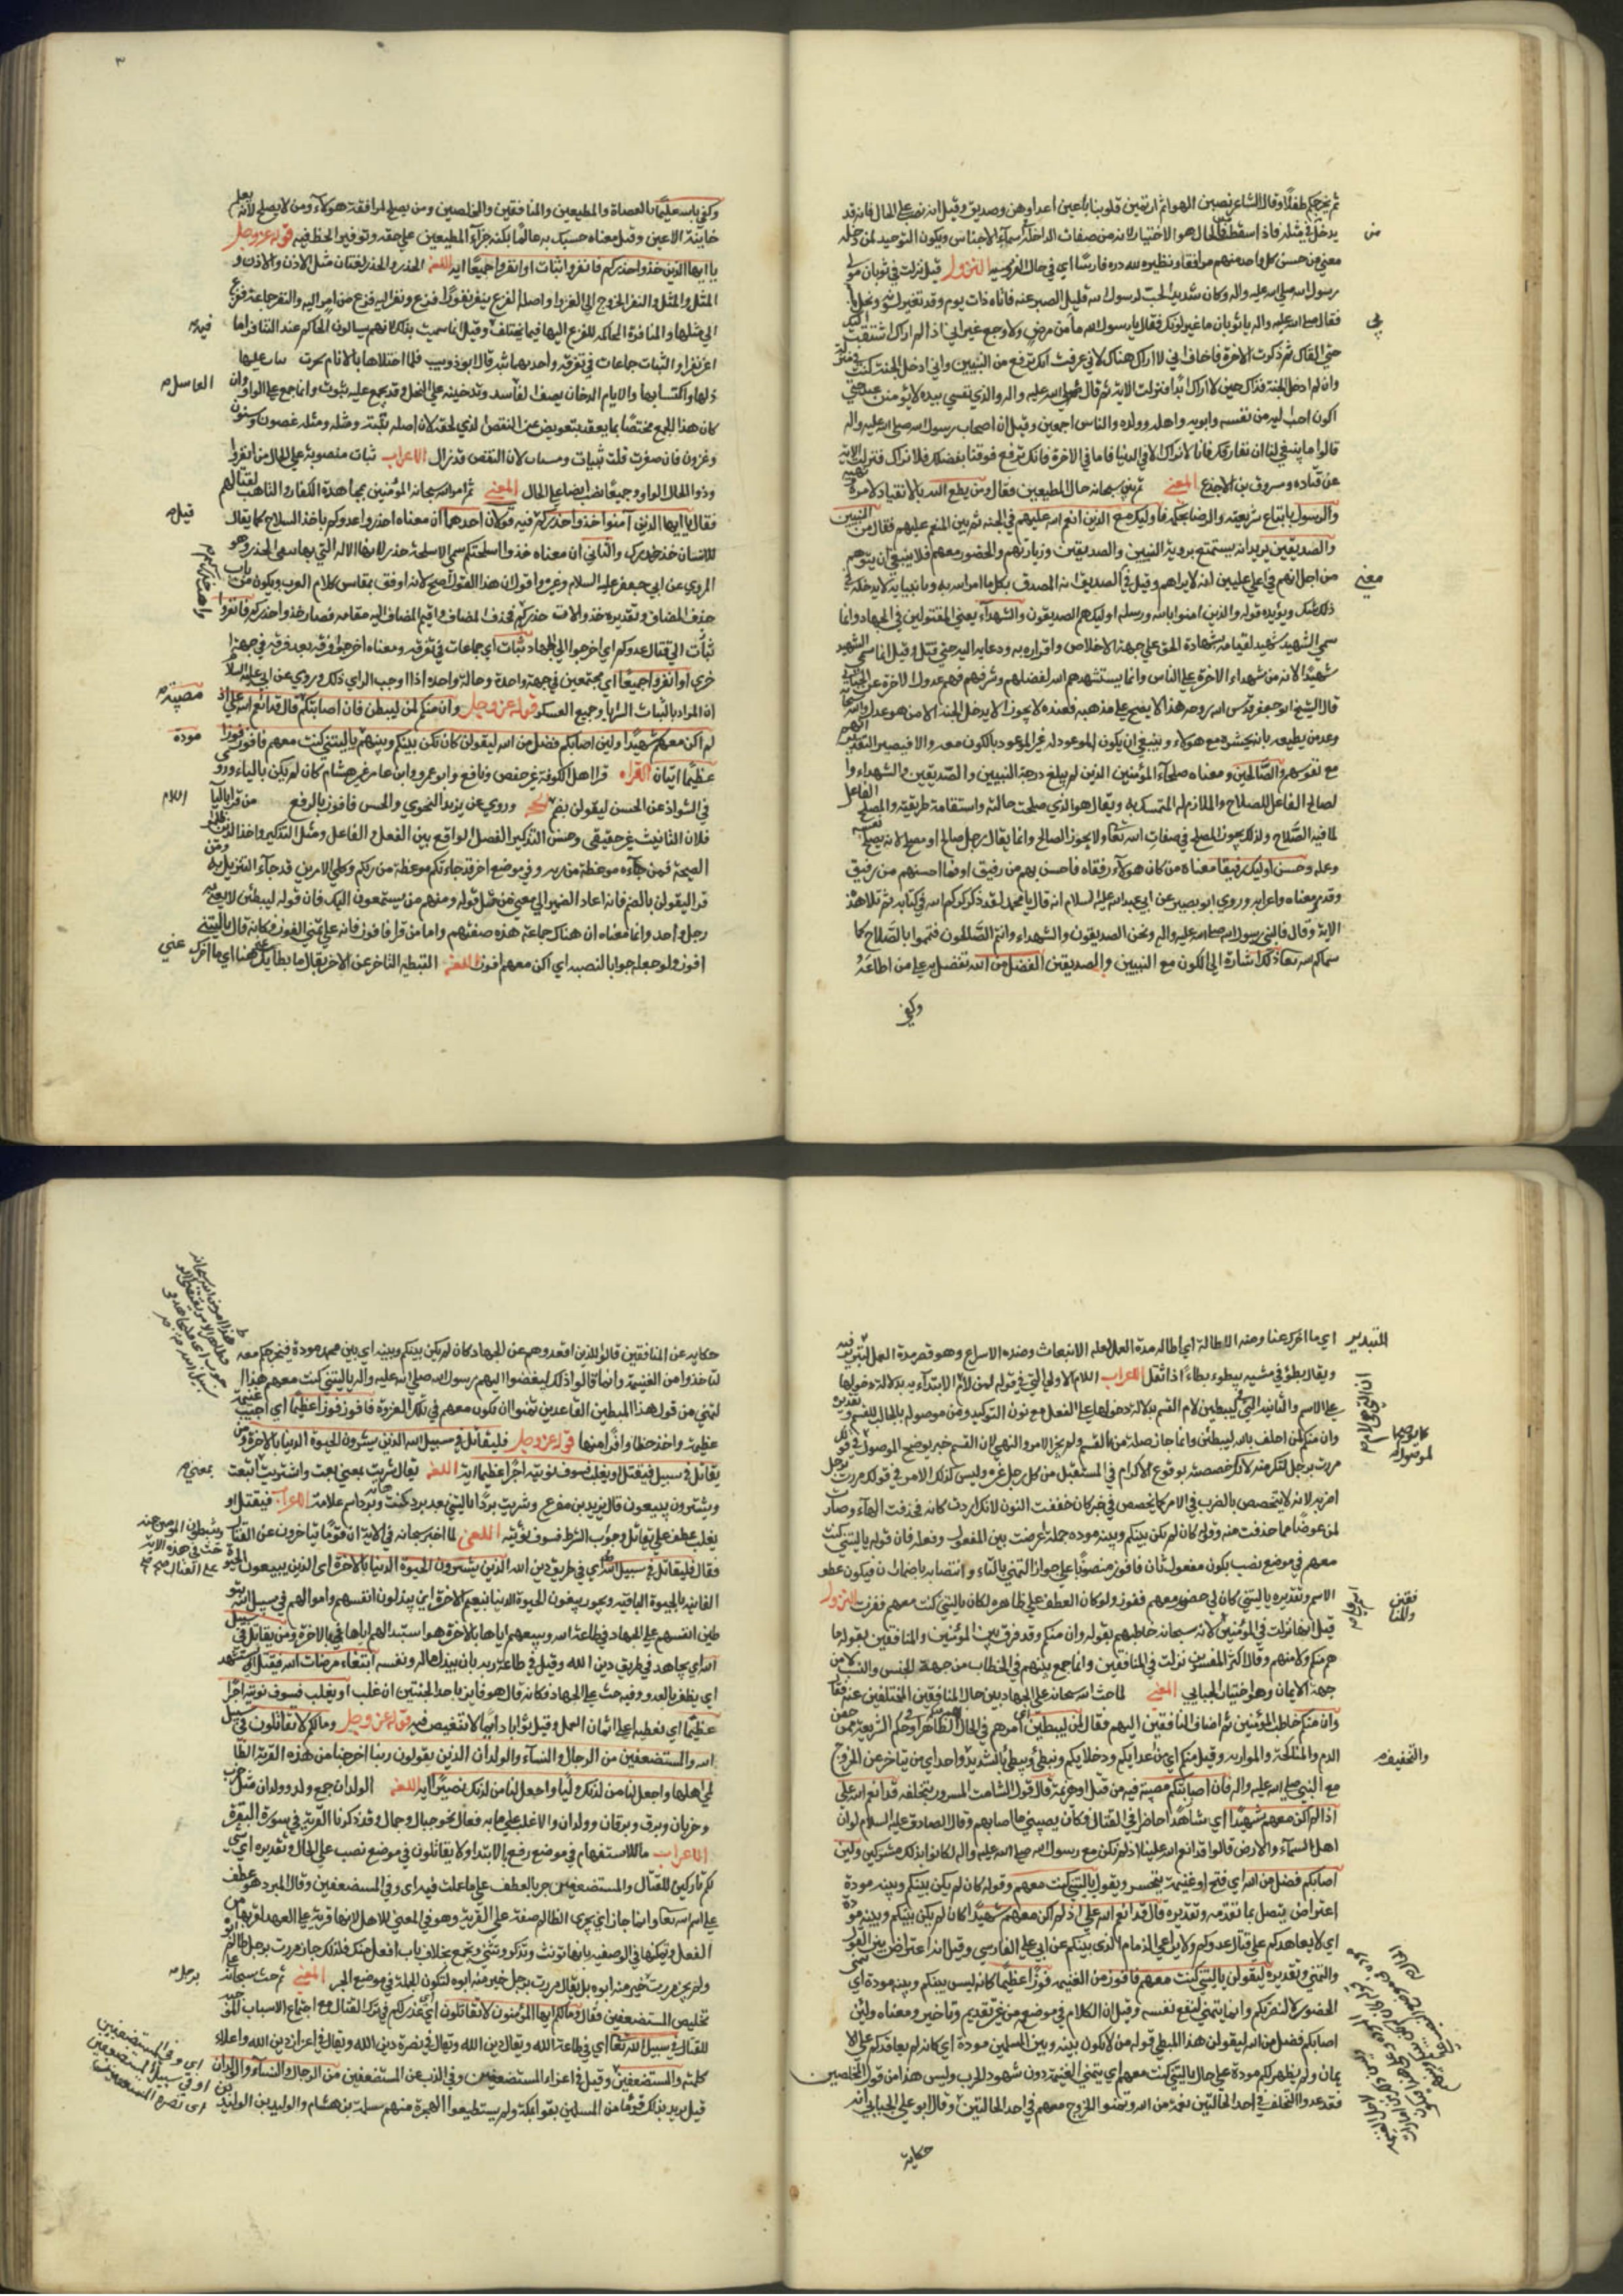 ثم يخرجكم طفلا وقال الشاعر نصبن الهوا ثم ارتمين قلوبنا باعين اعدا وهن وصديق وقيل انه نصب على الحال فانه قد
يدخل في مثله فاذا سقط فالحال هو الاختيار لانه من صفات الداخلة اسماء الاجناس ويكون التوحيد لمن دخله
معنى من حسن كل واحد منهم مرافقا ونظيره لله دره فارسا اي في حال الفروسيه النزول قيل نزلت في ثوبان مولى
رسول الله صلى الله عليه واله وكان شديد الحب لرسول الله قليل الصبر عنه فاتاه ذات يوم وقد تغير لونه ونحل
فقال صلى الله عليه واله يا ثوبان ما غير لونك فقال يا رسول الله ما من مرض ولا وجع غير اني اذا لم ارك اشتقت اليك
حتى القاك ثم ذكرت الاخرة فاخاف اني لا اراك هناك لاني عرفت انك ترفع مع النبيين واني ان ادخل الجنة كنت في منزلة
وان لم ادخل الجنة فذاك حين لا اراك ابدا فنزلت الاية ثم قال صلى الله عليه واله والذي نفسي بيده لا يؤمنن عبد حتى
اكون احب اليه من نفسه وابويه واهله وولده والناس اجمعين وقيل ان اصحاب رسول الله صلى الله عليه واله
قالوا ما ينبغي لنا ان نفارقك فانا لا نراك الا في الدنيا فاما في الاخرة فانك ترفع فوقنا بفضلك فلا نراك فنزلت الاية
عن قتاده ومسروق بن الاجدع المعنى ثم بين سبحانه حال المطيعين فقال ومن يطع الله بالانقياد لامره
والرسول باتباع شريعته والرضا بحكمه فاوليك مع الذين انعم الله عليهم في الجنة ثم بين المنعم عليهم فقال من النبيين
والصديقين يريد انه يستمتع بروية النبيين والصديقين وزيارتهم والحضور معهم فلا ينبغي ان يتوهم
من اجل انهم في اعلى عليين انه لا يراهم وقيل في الصديق انه المصدق بكل ما امر الله به وبانبيايه لا يدخله في
ذلك شك ويؤيده قوله والذين امنوا بالله ورسله اوليك هم الصديقون والشهداء يعني المقتولين في الجهاد وانما
سمي الشهيد شهيدا لقيامه بشهادة الحق على جهة الاخلاص واقراره به ودعايه اليه حتى قتل وقيل انما سمي الشهيد
شهيدا لانه من شهداء الاخرة على الناس وانما يستشهدهم الله لفضلهم وشرفهم فهم عدول الاخرة عن الجبائي
قال الشيخ ابو جعفر قدس الله روحه هذا لا يصح على مذهبه فعنده لا يجوز الا يدخل الجنة الا من هو عدل والله سبحانه
وعد من يطيعه بانه يحشره مع هولاء وينبغي ان يكون الموعود له غير الموعود بالكون معه والا فيصير التقدير انهم
مع نفوسهم والصالحين ومعناه صلحاء المؤمنين الذين لم يبلغ درجة النبيين والصديقين والشهداء وا
لصالح الفاعل للصلاح والملازم له المتمسك به ويقال هو الذي صلحت حاله واستقامة طريقته والمصلح الفاعل
لما فيه الصلاح ولذلك يجوز المصلح في صفات الله تعالى ولا يجوز الصالح وانما يقال رجل صالح او مصلح لانه يصلح نفسه
وعمله وحسن اوليك رفيقا معناه من كان هولاء رفقاه فاحسن بهم من رفيق او فما احسنهم من رفيق
وقد مر معناه واعرابه وروى ابو بصير عن ابي عبد الله عليه السلام انه قال يا با محمد لقد ذكركم الله في كتابه ثم تلا هذه
الاية وقال فالنبي رسول الله صلى الله عليه واله ونحن الصديقون والشهداء وانتم الصالحون فتسموا بالصلاح كما
سماكم الله تعالى ذلك اشارة الى الكون مع النبيين والصديقين الفضل من الله تفضل به على من اطاعه
وكفى
من
معنى
٣
وكفى بالله عليما بالعصاة والمطيعين والمنافقين والمخلصين ومن يصلح لمرافقة هولاء ومن لا يصلح لانه يعلم
خاينة الاعين وقيل معناه حسبك به عالما بكنه جزاء المطيعين على حقه وتوفير الحظ فيه قوله عز وجل
يا ايها الذين خذوا حذركم فانفروا ثبات او انفروا جميعا اية اللغة الحذر والحذر لغتان مثل الاذن والاذن و
المثل والمثل والنفر الخروج الى الغزو واصله الفزع نفر ينفر نفورا فزع ونفر اليه فزع من امر اليه والنفر جماعة تفزع
الى مثلها والمنافرة المحاكمة للفزع اليها فيما يختلف فيه وقيل انما سميت بذلك لانهم يسالون الحاكم عند التنافر ايما
اعز نفرا والثبات جماعات في تفرقة واحدتها ثبة قال ابو ذويب فلما اجتلاها بالايام تحيرت ثبات عليها
ذلها واكتسابها والايام الدخان يصف العاسل وتدخينه على النحل وقد يجمع عليه ثبون وانما جمع على الواو وان
كان هذا الجمع مختصا بما يعقل تعويض من النقص الذي لحقه لان اصله ثبوة ومثله عضون وسنون
وعزون فان صغرت قلت ثبيات وسنيات لان النقص قد زال الاعراب ثبات منصوبة على الحال من انفروا
وذو الحال الواو وجميعا ايضا على الحال المعنى ثم امر الله سبحانه المؤمنين بمجاهدة الكفار والتاهب لقتالهم
فقال يا ايها الذين آمنوا خذوا حذركم فيه قولان احدهما ان معناه احذروا عدوكم باخذ السلاح كما يقال
للانسان خذ حذرك والثاني ان معناه خذوا اسلحتكم سمى الاسلحة حذرا لانها الالة التي بها يتقى الحذر وهو
المروي عن ابي جعفر عليه السلام وغيره واقول ان هذا القول اصح لانه اوفق بمقاييس كلام العرب ويكون من باب
حذف المضاف وتقديره خذوا الات حذركم فحذف المضاف واقيم المضاف اليه مقامه فصار خذوا حذركم فانفروا
ثبات الى قتال عدوكم اي اخرجوا الى الجهاد ثبات اي جماعات في تفرقة ومعناه اخرجوا فرقة بعد فرقة في جهة
خرى او انفروا جميعا اي مجتمعين في جهة واحدة وحالة واحدة اذا اوجب الراي ذلك وروي عن ابي جعفر عليه السلام
ان المراد بالثبات السرايا وجميع العسكر قوله عز وجل وان منكم لمن ليبطئن فان اصابتكم قال قد انعم الله علي اذ
لم اكن معهم شهيدا ولين اصابكم فضل من الله ليقولن كان لم تكن بينكم وبينهم يا ليتني كنت معهم فافوز فوزا
عظيما ايتان القراءة قرا اهل الكوفة غير حفص ونافع وابو عمرو وابن عامر غير هشام كان لم يكن بالياء وروى
في الشواذ عن الحسن ليقولن بضم وروي عن يزيد النحوي والحسن فافوز بالرفع من قرا بالياء
فلان التانيث غير حقيقي وحسن التذكير الفصل الواقع بين الفعل والفاعل ومثل التذكير واخذ الذين ظلموا
الصيحة فمن جاءه موعظة من ربه وفي موضع اخر قد جاءتكم موعظة من ربكم وكلى الامرين قد جاء التنزيل به ومن
قرا ليقولن بالضم فانه اعاد الضمير الى معنى من مثل قوله ومنهم من يستمعون اليك فان قوله ليبطئن لا يعني به
رجل واحد وانما معناه ان هناك جماعة هذه صفتهم واما من قرا فافوز فانه على تمني الفوز فكانه قال يا ليتني
افوز ولو جعله جوابا لنصبه اي اكن معهم افوز اللغة التبطئه التاخر عن الامر يقال ما بطا بك عنا اي ما اخرك عنى
فيه
العاسل
قيل
مصيبة
مودة
اللام
اي ما اخرك عنا ومنه الاطالة اي اطاله مدة العمل لقلة الانبعاث وضده الاسراع وهو قصر مدة العمل للتدبير فيه
ويقال بطؤ في مشيه يبطؤ بطاءا اذا ثقل الاعراب اللام الاولى التي في قوله لمن لام الابتداء بدلالة دخولها
على الاسم والثانية التي في ليبطئن لام القسم بدلالة دخولها على الفعل مع نون التوكيد ومن موصولة بالجالب للقسم وتقديره
وان منكم لمن احلف بالله ليبطئن وانما جاز صلة من بالقسم ولم يجز الامر والنهي لان القسم خبر يوضح الموصول في قولك
مررت برجل لتكرمنه لانك خصصته بوقوع الاكرام في المستقبل من كل رجل غيره وليس كذلك الامر في قولك مررت برجل
اضربه لانه لا يتخصص بالضرب في الامر كما يخصص في خبر كان خففت النون لانك اردت كانه فحذفت الهاء وصارت
لم عوضا مما حذفت منه وقوله كان لم تكن بينكم وبينه مودة جملة اعترضت بين المفعول وفعله فان قوله يا ليتني كنت
معهم في موضع نصب بكونه مفعول ثان فافوز منصوبا على جواز التمني بالفاء وانتصابه باضمار ان فيكون عطف
الاسم وتقديره يا ليتني كان لي حضور معهم ففوز ولو كان العطف على ظاهره لكان يا ليتني كنت معهم ففزت النزول
قيل انها نزلت في المؤمنين لانه سبحانه خاطبهم بقوله وان منكم وقد فرق بين المؤمنين والمنافقين بقوله ما
هم منكم ولا منهم وقال اكثر المفسرين نزلت في المنافقين وانما جمع بينهم في الخطاب من جهة الجنس والنسب لا من
جهة الايمان وهو اختيار الجبايي المعنى لما حث الله سبحانه على الجهاد بين حال المنافقين المختلفين عنه فقال
وان منكم خاطب المؤمنين ثم اضاف المنافقين اليهم فقال لمن ليبطئن اي امرهم في الحال الظاهر او حكم الشريعة من حقن
الدم والمناكحة والموارثة وقيل منكم اي من اعدايكم ودخلايكم ويبطئ ويبطئ بالتشديد واحد اي من يتاخر عن الخروج
مع النبي صلى الله عليه واله فان اصابتكم مصيبة فيه من قتل او هزيمة قال قول الشامت المسرور بتخلفه قد انعم الله علي
اذ لم اكن معهم شهيدا اي شاهدا حاضرا في القتال فكان يصيبني ما اصابهم وقال الصادق عليه السلام لو ان
اهل السماء والارض قالوا قد انعم الله علينا اذ لم نكن مع رسول الله صلى الله عليه واله لكانوا بذلك مشركين ولين
اصابكم فضل من الله اي فتح او غنيمة يتحسر ويقول يا ليتني كنت معهم وقوله كان لم يكن بينكم وبينه مودة
اعتراض يتصل بما تقدمه وتقديره قال قد انعم الله علي اذ لم اكن معهم شهيدا كان لم يكن بينكم وبينه مودة
اي لا يعاضدكم على قتال عدوكم ولا يراعي الذمام الذى بينكم عن ابي علي الفارسي وقيل انه اعتراض بين القول
والتمني وتقديره ليقولن يا ليتني كنت معهم فافوز من الغنيمه فوزا عظيما كانه ليس بينكم وبينه مودة اي
الحضور لا لنصرتكم وانما يتمنى لنفع نفسه وقيل ان الكلام في موضع من غير تقديم وتاخير ومعناه ولين
اصابكم فضل من الله ليقولن هذا المبطي قول من لا تكون بينه وبين المسلمين مودة اي كانه لم يعاقدكم على الا
يمان ولم يظهر لكم مودة على حال يا ليتني كنت معهم اي يتمنى الغنيمة دون شهود الحرب وليس هذا من قول المخلصين
فقد عدوا التخلف في احد الحالتين نعمة من الله وتمنوا الخروج معهم في احد الحالتين وقال ابو علي الجبايي انه
حكاية
والتخفيف
حكايه عن المنافقين قالوا للذين اقعدوهم عن الجهاد كان لم يكن بينكم وبينه اي بين محمد مودة فيخرجكم معه
لتاخذوا من الغنيمة وانما قالوا ذلك ليبغضوا اليهم رسول الله صلى الله عليه واله يا ليتني كنت معهم هذا ا
لتمني من قول هذا المبطين القاعدين تمنوا ان يكون معهم في تلك الغزوة فافوز فوزا عظيما اي اصيب غنيمة
عظيمة واخذ حظا وافرا منها قوله عز وجل فليقاتل في سبيل الله الذين يشرون الحيوة الدنيا بالاخرة ومن
يقاتل في سبيل فيقتل او يغلب فسوف نؤتيه اجرا عظيما اية اللغة يقال شريت بمعنى بعت واشتريت ابتعت
ويشترون يبيعون قال يزيد بن مفرغ وشريت بردا يا ليتني بعد برد كنت هامه وبرد اسم غلامه الاعراب فيقتل او
يغلب عطف على يقاتل وجواب الشرط فسوف نؤتيه المعنى لما اخبر سبحانه في الاية ان قوما يتاخرون عن القتال
فقال فليقاتل في سبيل الله اي في طريق دين الله الذين يشرون الحيوة الدنيا بالاخرة اى الذين يبيعون الحيوة
الفانيه بالحيوة الباقيه ويجوز يبيعون الحيوة الدنيا بنعيم الاخرة اي يبذلون انفسهم واموالهم في سبيل الله بتو
طين انفسهم على الجهاد في طاعة الله وبيعهم اياها بالاخرة هو استبدالهم اياها في الاخرة ومن يقاتل في سبيل
الله اي يجاهد في طريق دين الله وقيل في طاعة ربه بان يبذل ماله ونفسه ابتغاء مرضات الله فيقتل اي يستشهد
اي يظفر بالعدو وفيه حث على الجهاد فكانه قال هو فايز باحد الحسنتين ان غلب او يغلب فسوف نؤتيه اجرا
عظيما اي نعطيه اعلى اثمان العمل وقيل ثوابا دايما لا تنغيص فيه قوله عز وجل وما لكم لا تقاتلون في سبيل
الله والمستضعفين من الرجال والنساء والولدان الذين يقولون ربنا اخرجنا من هذه القرية الظا
لم اهلها واجعل لنا من لدنك وليا واجعل لنا من لدنك نصيرا اية اللغة الولدان جمع ولد وولدان مثل خرب
وخربان وبرق وبرقان وولدان والاغلب على بابه فعال نحو جبال وجمال وقد ذكرنا القرية في سورة البقرة
الاعراب ما للاستفهام في موضع رفع بالابتداء ولا يقاتلون في موضع نصب على الحال وتقديره اي شى
لكم تاركين للقتال والمستضعفين جر بالعطف على ما عملت فيه اى وفي المستضعفين وقال المبرد هو عطف
على اسم الله تعالى وانما جاز ان يجرى الظالم صفة على القرية وهو في المعنى للاهل لانها قوية على العهد لقربها من
الفعل وتمكنها في الوصفيه بانها تونث وتذكر وتثنى وتجمع بخلاف باب افعل منك فلذلك جاز مررت برجل ظالم ابوه
ولم يجز مررت خير منه ابوه بل يقال مررت برجل خير منه ابوه لتكون الجملة في موضع الجر المعنى ثم حث سبحانه على
تخليص المستضعفين فقال وما لكم ايها المؤمنون لا تقاتلون اي اي عذر لكم في ترك القتال مع اجتماع الاسباب المو
للقتال في سبيل الله تعالى اي في طاعة الله ويقال دين الله ويقال في نصرة دين الله ويقال في اعزاز دين الله واعلاء
كلمته والمستضعفين وقيل في اعزاز المستضعفين وفي الذب عن المستضعفين من الرجال والنساء والولدان
قيل يريد بذلك قوما من المسلمين بقوا بمكة ولم يستطيعوا الهجرة منهم سلمة بن هشام والوليد بن الوليد
بمعنى
برجل
اى وفي المستضعفين
او في سبيل المستضعفين
اى نصرة المستضعفين